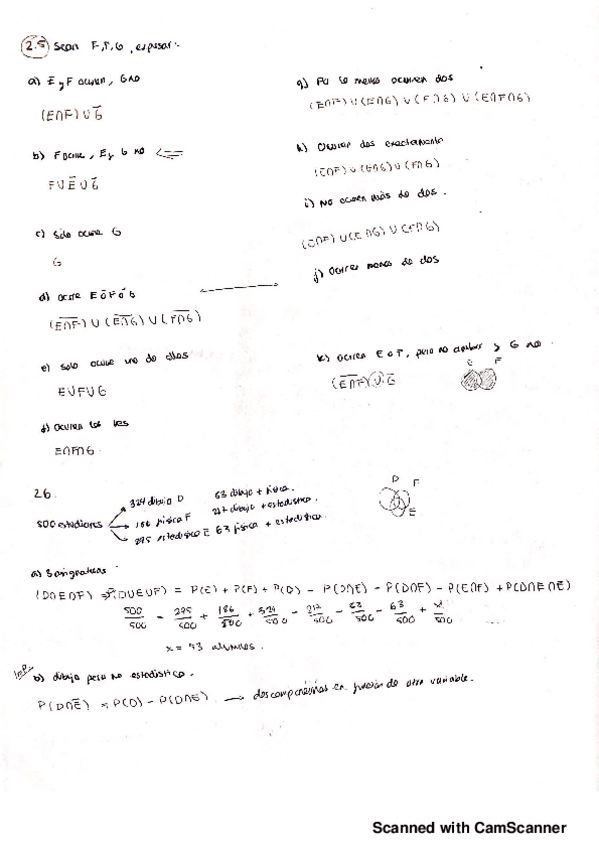 2.5 Sean F, F, G, expresar:
a) E y F ocurren, G no
(E∩F)∪G̅
b) F ocurre, E y G no
F∪E̅∪G̅
c) Sólo ocurre G
G
d) ocurre E ó F ó G
(E̅∩̅F̅)∪(E̅∩̅G̅)∪(F̅∩̅G̅)
e) solo ocurre uno de ellos
E∪F∪G
f) ocurren los tres
E∩F∩G
g) Por lo menos ocurren dos
(E∩F)∪(E∩G)∪(F∩G)∪(E∩F∩G)
h) Ocurren dos exactamente
(E∩F)∪(E∩G)∪(F∩G)
i) No ocurren más de dos.
(E∩F)∪(E∩G)∪(F∩G)
j) Ocurren menos de dos
k) ocurren E o F, pero no ambos y G no.
(E̅∩̅F̅)∪G̅
E F
26.
500 estudiantes
324 dibujo D
186 física F
295 estadística E
63 dibujo + física.
212 dibujo + estadística.
63 física + estadística.
D F
E
a) 3 asignaturas
(D∩E∩F) → P(D∪E∪F) = P(E) + P(F) + P(D) - P(D∩E) - P(D∩F) - P(E∩F) + P(D∩E∩F)
500/500 = 295/500 + 186/500 + 324/500 - 212/500 - 63/500 - 63/500 + x/500
x = 33 alumnos.
Imp.
b) dibujo pero no estadística.
P(D∩E̅) = P(D) - P(D∩E) → descomponerlas en función de otra variable.
Scanned with CamScanner